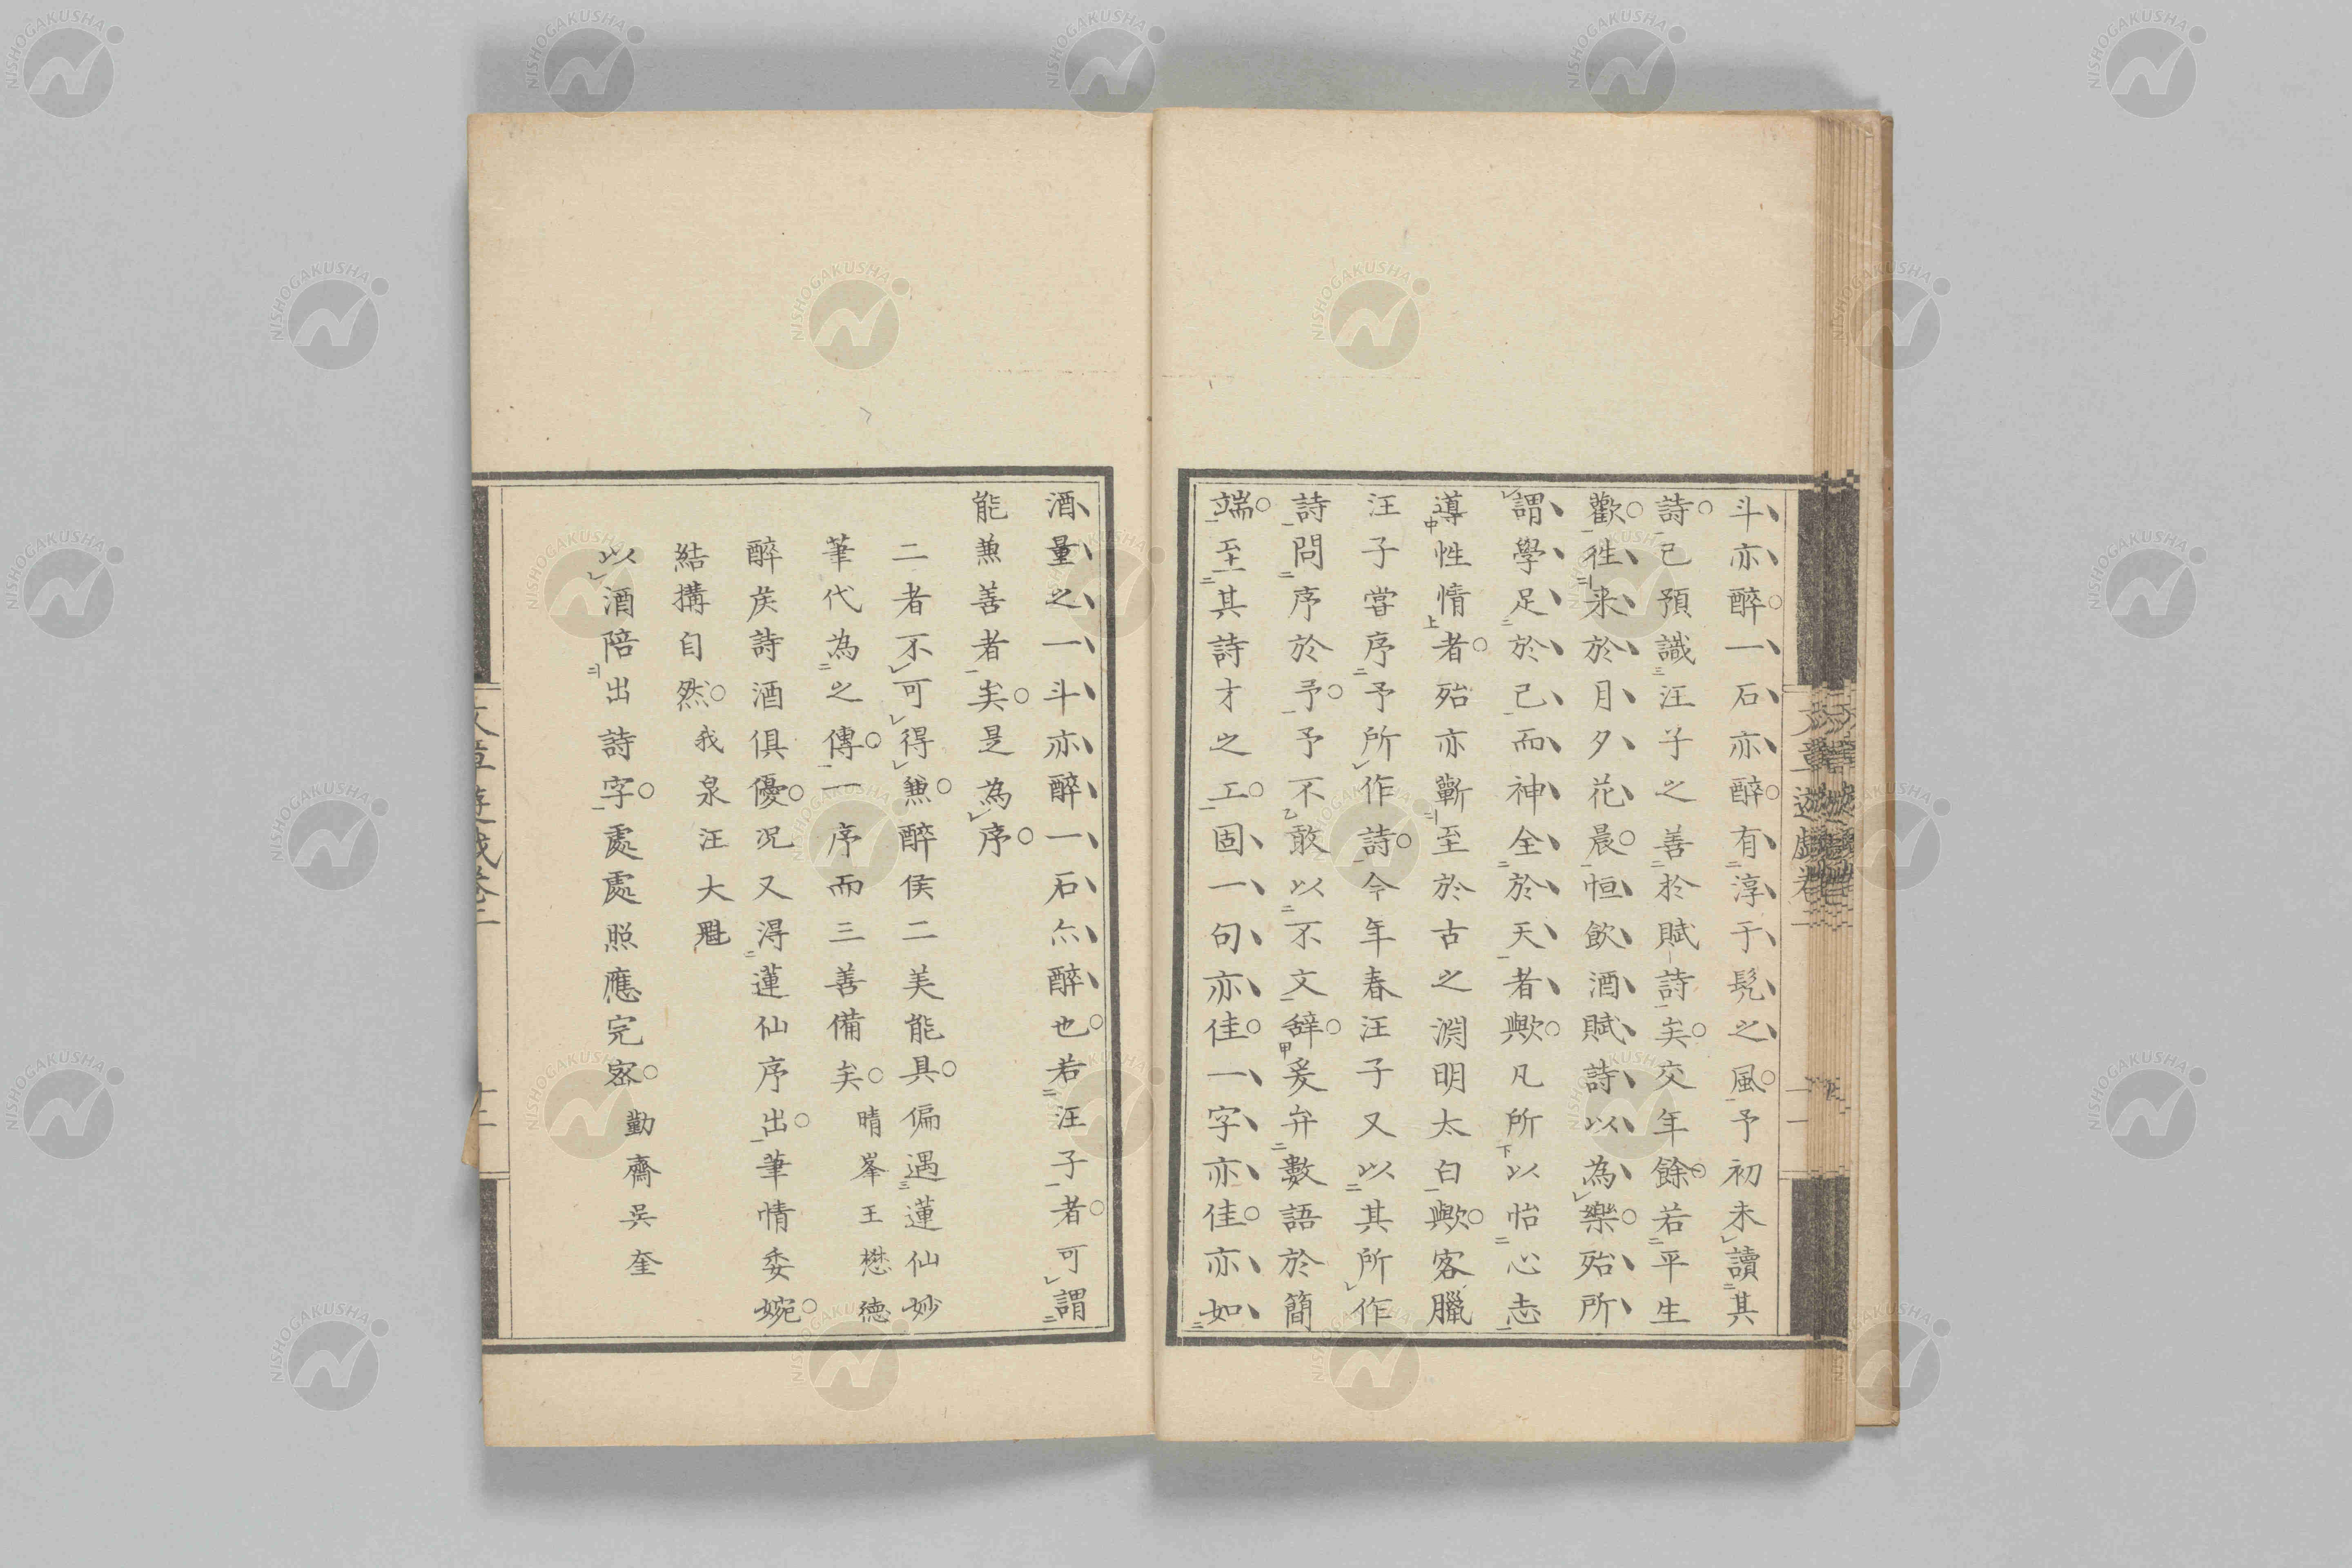 斗亦醉一石亦醉有淳于髡之風予初未讀其
詩已預識汪子之善於賦詩矣交年餘若平生
歡徃来於月夕花晨恒飲酒賦詩以為樂殆所
謂學足於己而神全於天者歟凡所以怡心志
導性情者殆亦蘄至於古之淵明太白歟客臘
汪子嘗序予所作詩今年春汪子又以其所作
詩問序於予予不敢以不文辞爰弁數語於簡
端至其詩才之工固一句亦佳一字亦佳亦如
酒量之一斗亦醉一石亦醉也若汪子者可謂
能兼善者矣是為序
二者不可得兼醉侯二美能具偏遇蓮仙妙
筆代為之傳一序而三善備矣 晴峯王懋德
醉矦詩酒俱優况又淂蓮仙序出筆情委婉
結搆自然 我泉汪大魁
以酒陪出詩字處處照應完密 勤齋吳奎
文章遊戲卷二
NISHOGAKUSHA